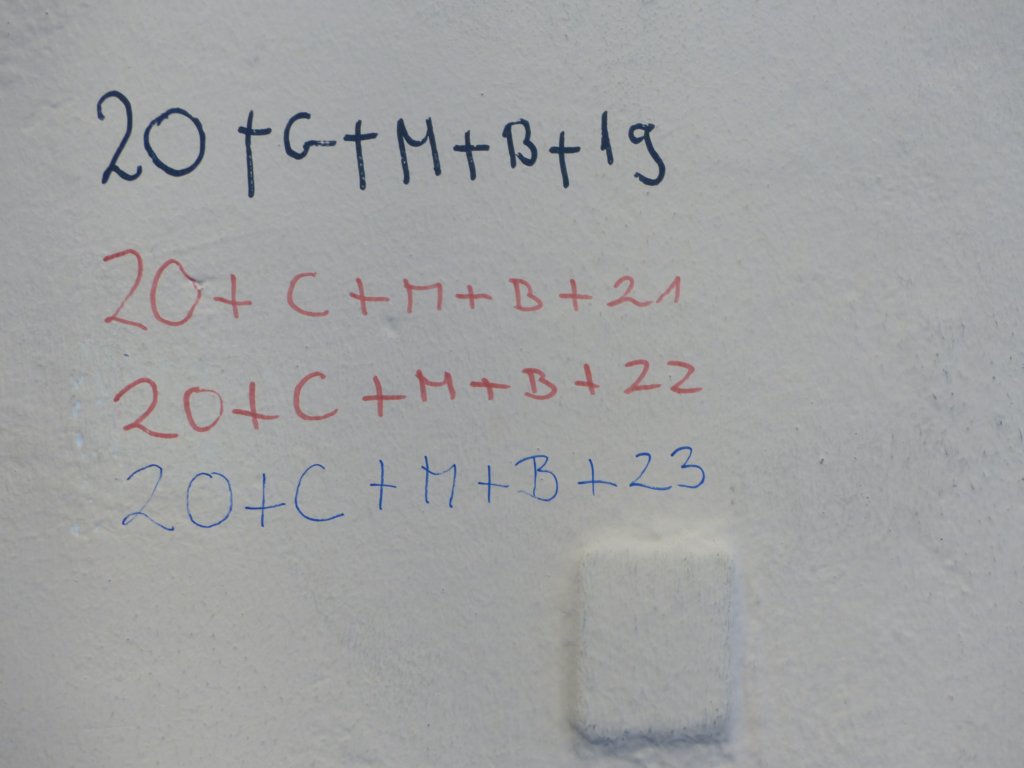 20+G+M+B+19
20+C+M+B+21
20+C+M+B+22
20+C+M+B+23